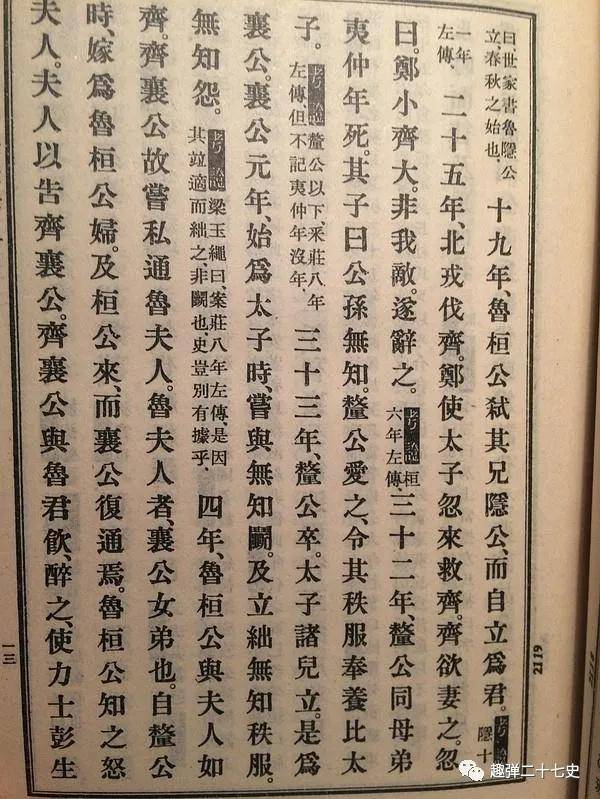 曰世家書魯隱公立、春秋之始也、十九年、魯桓公弒其兄隱公、而自立爲君。考證隱十
一年左傳、二十五年、北戎伐齊。鄭使太子忽來救齊。齊欲妻之。忽
曰。鄭小齊大。非我敵。遂辭之。考證桓六年左傳、三十二年、釐公同母弟
夷仲年死。其子曰公孫無知。釐公愛之、令其秩服奉養比太
子。考證釐公以下、釆莊八年左傳、但不記夷仲年沒年、三十三年、釐公卒。太子諸兒立。是爲
襄公。襄公元年、始爲太子時、嘗與無知鬭。及立絀無知秩服。
無知怨。考證梁玉繩曰、案莊八年左傳、是因其竝適而絀之、非鬭也、史豈別有據乎、四年、魯桓公與夫人如
齊。齊襄公故嘗私通魯夫人。魯夫人者、襄公女弟也。自釐公
時、嫁爲魯桓公婦。及桓公來、而襄公復通焉。魯桓公知之怒
夫人。夫人以吿齊襄公。齊襄公與魯君飮、醉之、使力士彭生
一三
2119
趣弹二十七史